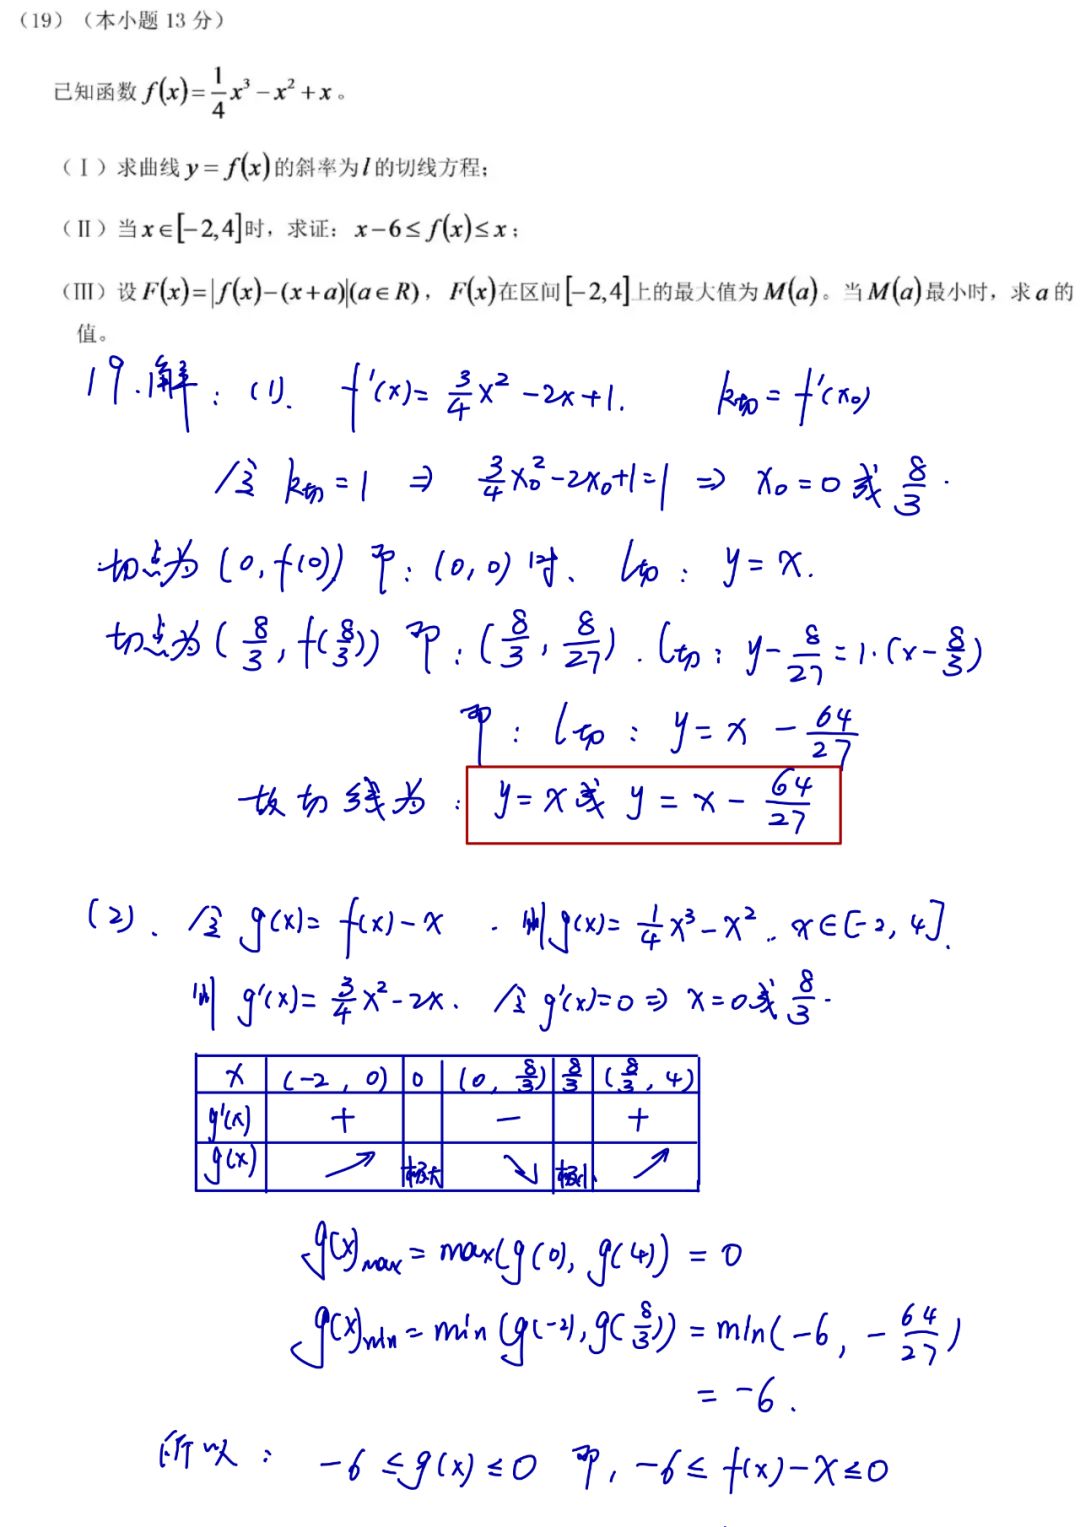 (19)(本小题 13 分)
已知函数 f(x)=\frac{1}{4}x³-x²+x。
(Ⅰ)求曲线 y=f(x)的斜率为 l 的切线方程;
(Ⅱ)当 x∈[-2,4]时,求证: x-6≤f(x)≤x;
(Ⅲ)设 F(x)=|f(x)-(x+a)|(a∈R),F(x)在区间[-2,4]上的最大值为 M(a)。当 M(a)最小时,求 a 的
值。
19.解:(1). f'(x)=\frac{3}{4}x²-2x+1. k切=f'(x₀)
令 k切=1 ⇒ \frac{3}{4}x₀²-2x₀+1=1 ⇒ x₀=0或\frac{8}{3}.
切点为(0,f(0)) 即:(0,0)时、l切:y=x.
切点为(\frac{8}{3},f(\frac{8}{3})) 即:(\frac{8}{3},\frac{8}{27}).l切:y-\frac{8}{27}=1·(x-\frac{8}{3})
即:l切:y=x-\frac{64}{27}
故切线为:y=x或y=x-\frac{64}{27}
(2). 令g(x)=f(x)-x.则g(x)=\frac{1}{4}x³-x².. x∈[-2,4].
则g'(x)=\frac{3}{4}x²-2x. 令g'(x)=0⇒x=0或\frac{8}{3}.
x (-2,0) 0 (0,\frac{8}{3}) \frac{8}{3} (\frac{8}{3},4)
g'(x) + - +
g(x) ↗ 极大 ↘ 极小 ↗
g(x)max=max(g(0),g(4))=0
g(x)min=min(g(-2),g(\frac{8}{3}))=min(-6,-\frac{64}{27})
=-6.
所以:-6≤g(x)≤0 即,-6≤f(x)-x≤0